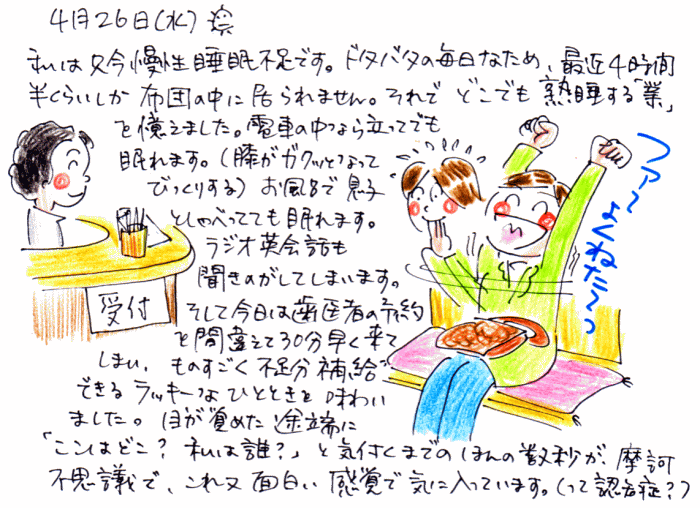 4月26日(水)
私は只今慢性睡眠不足です。ドタバタの毎日なため、最近4時間
半くらいしか布団の中に居られません。それでどこでも熟睡する「業」
を憶えました。電車の中なら立ってでも
眠れます。(膝がガクッとなって
びっくりする) お風呂で息子
としゃべってても眠れます。
ラジオ英会話も
聞きのがしてしまいます。
そして今日は歯医者の予約
を間違えて30分早く来て
しまい、ものすごく不足分補給
できるラッキーなひとときを味わい
ました。目が覚めた途端に
「ここはどこ?私は誰?」と気付くまでのほんの数秒が、摩訶
不思議で、これ又面白い感覚で気に入っています。(って認知症?)
受付
ファ〜
よくねた〜っ